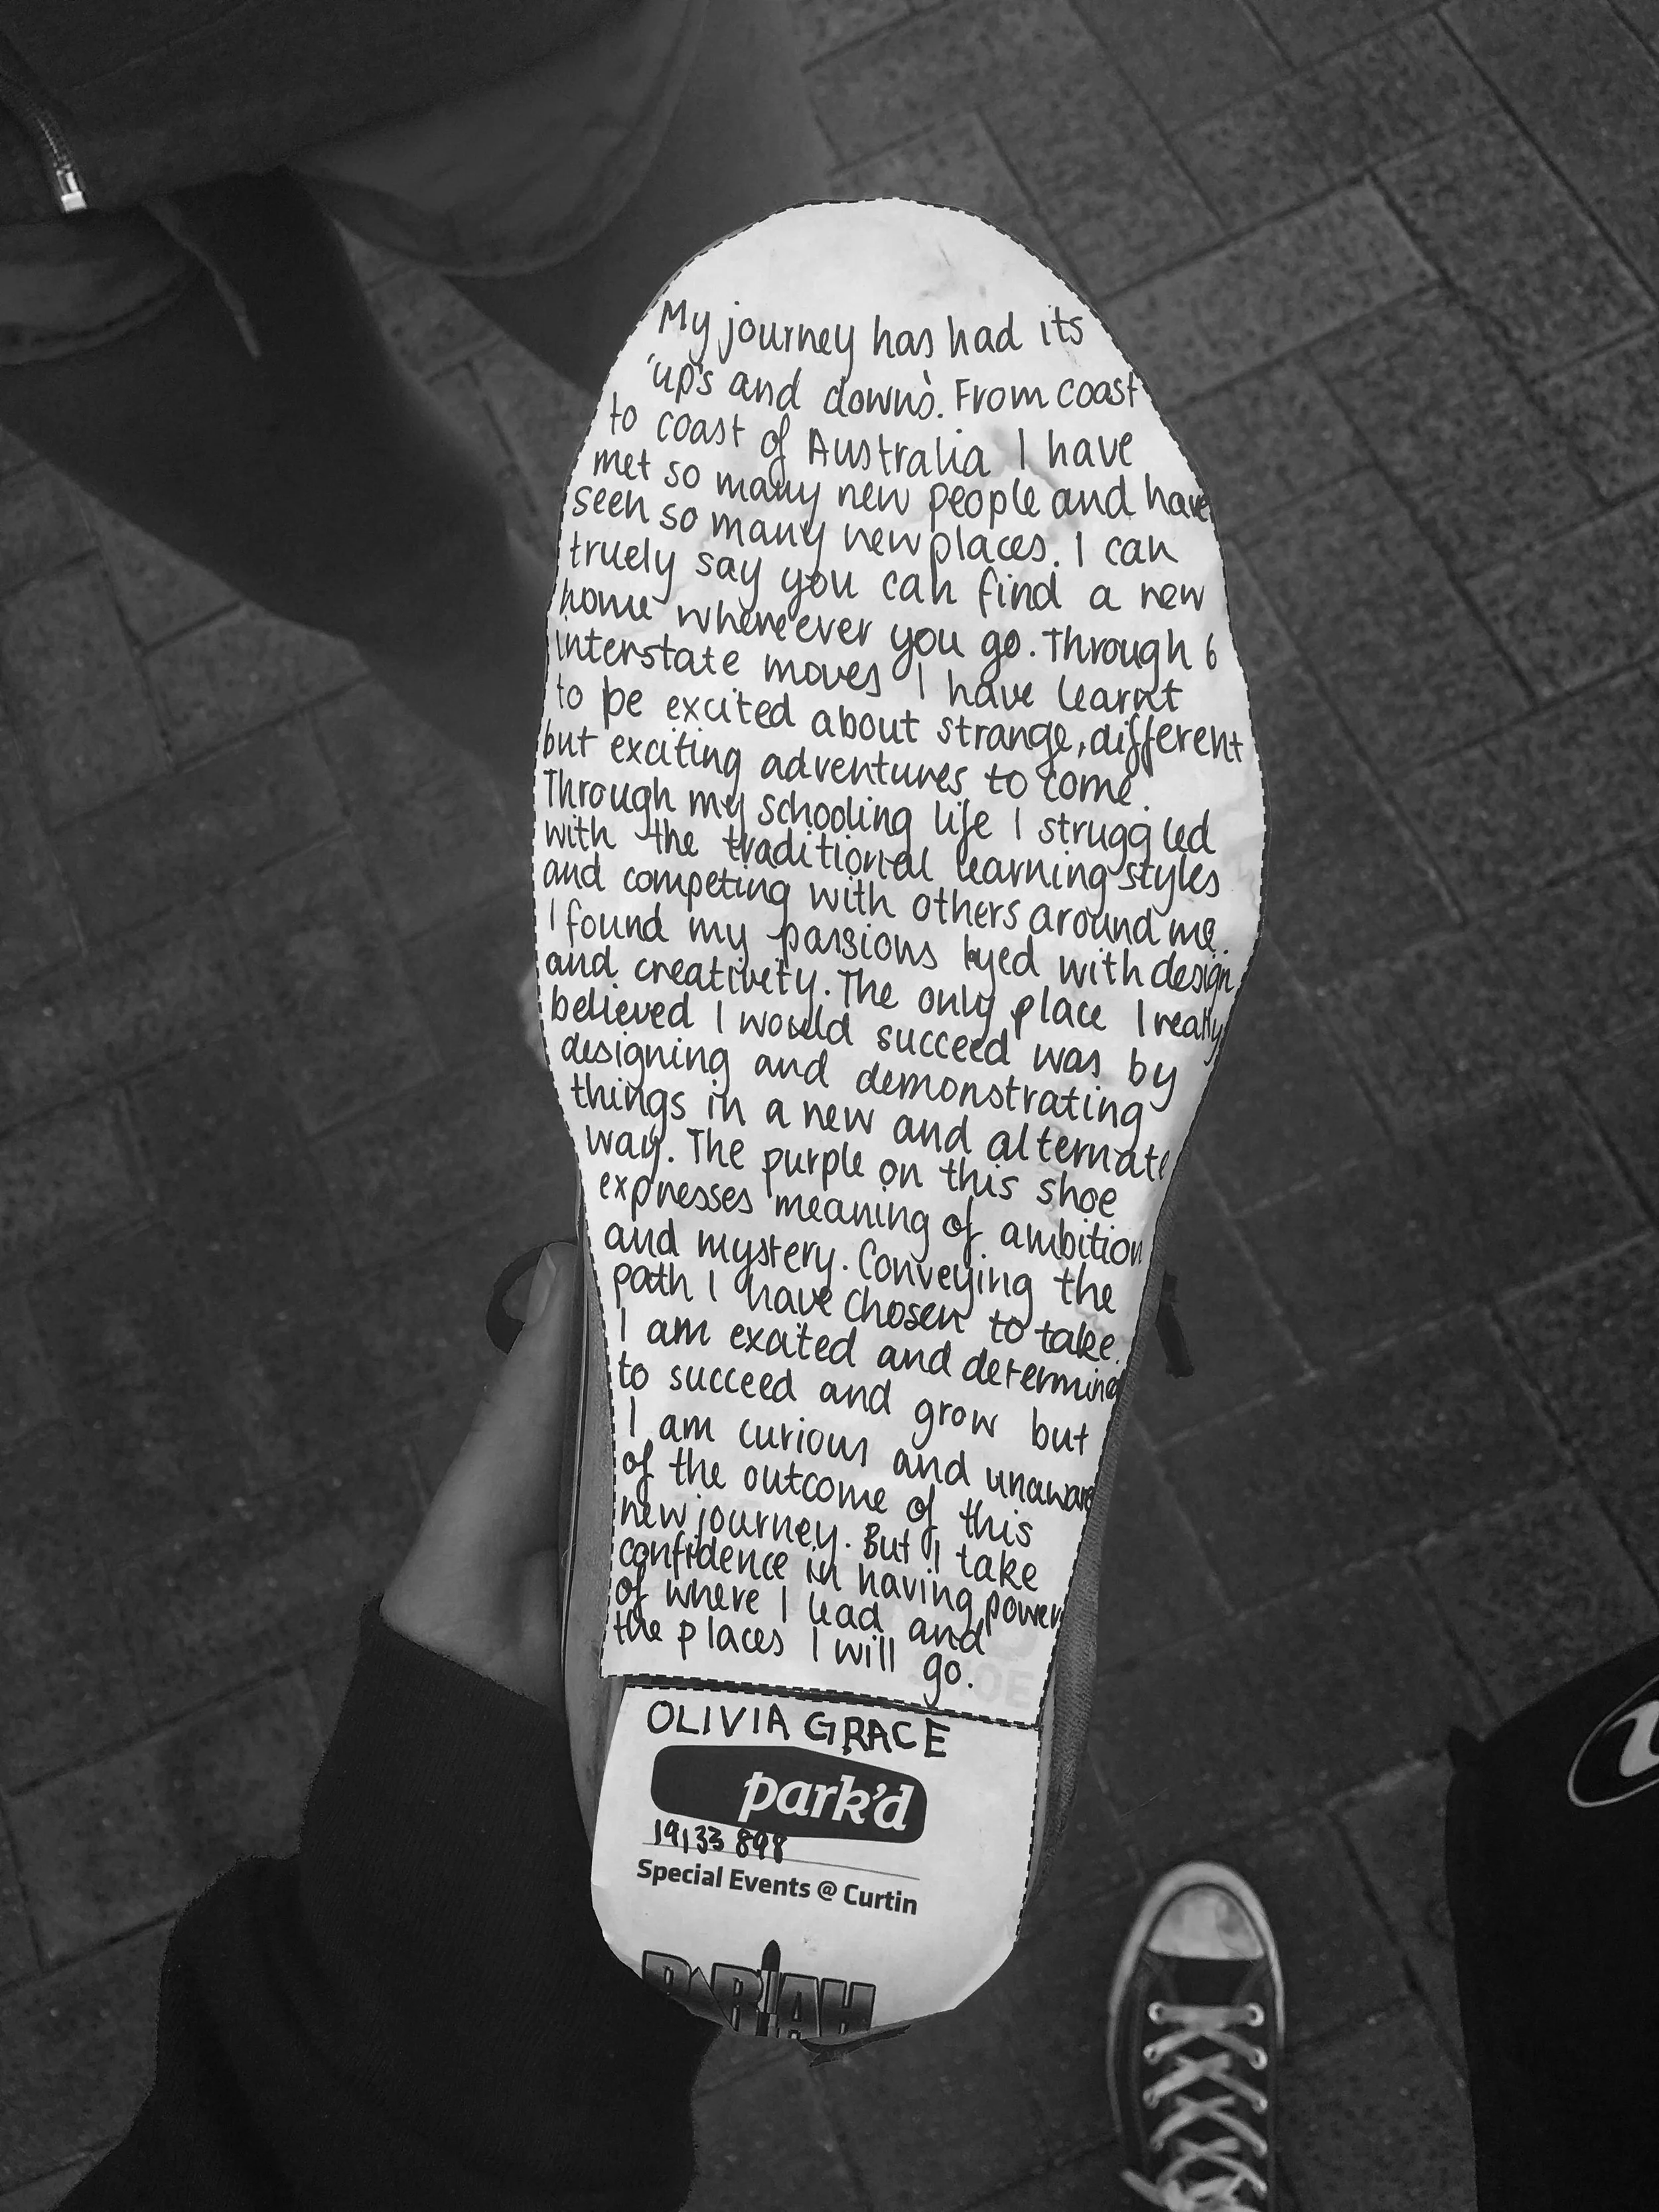 My journey has had its
'up's and downs'. From coast
to coast of Australia I have
met so many new people and have
seen so many new places. I can
truely say you can find a new
home whereever you go. Through 6
interstate moves I have learnt
to be excited about strange, different
but exciting adventures to come.
Through my schooling life I struggled
with the traditional learning styles
and competing with others around me.
I found my passions layed with design
and creativity. The only place I really
believed I would succeed was by
designing and demonstrating
things in a new and alternate
way. The purple on this shoe
expresses meaning of ambition
and mystery. Conveying the
path I have chosen to take.
I am excited and determined
to succeed and grow but
I am curious and unaware
of the outcome of this
new journey. But I take
confidence in having power
of where I lead and
the places I will go.
OLIVIA GRACE
park'd
19133898
Special Events @ Curtin
PARIAH